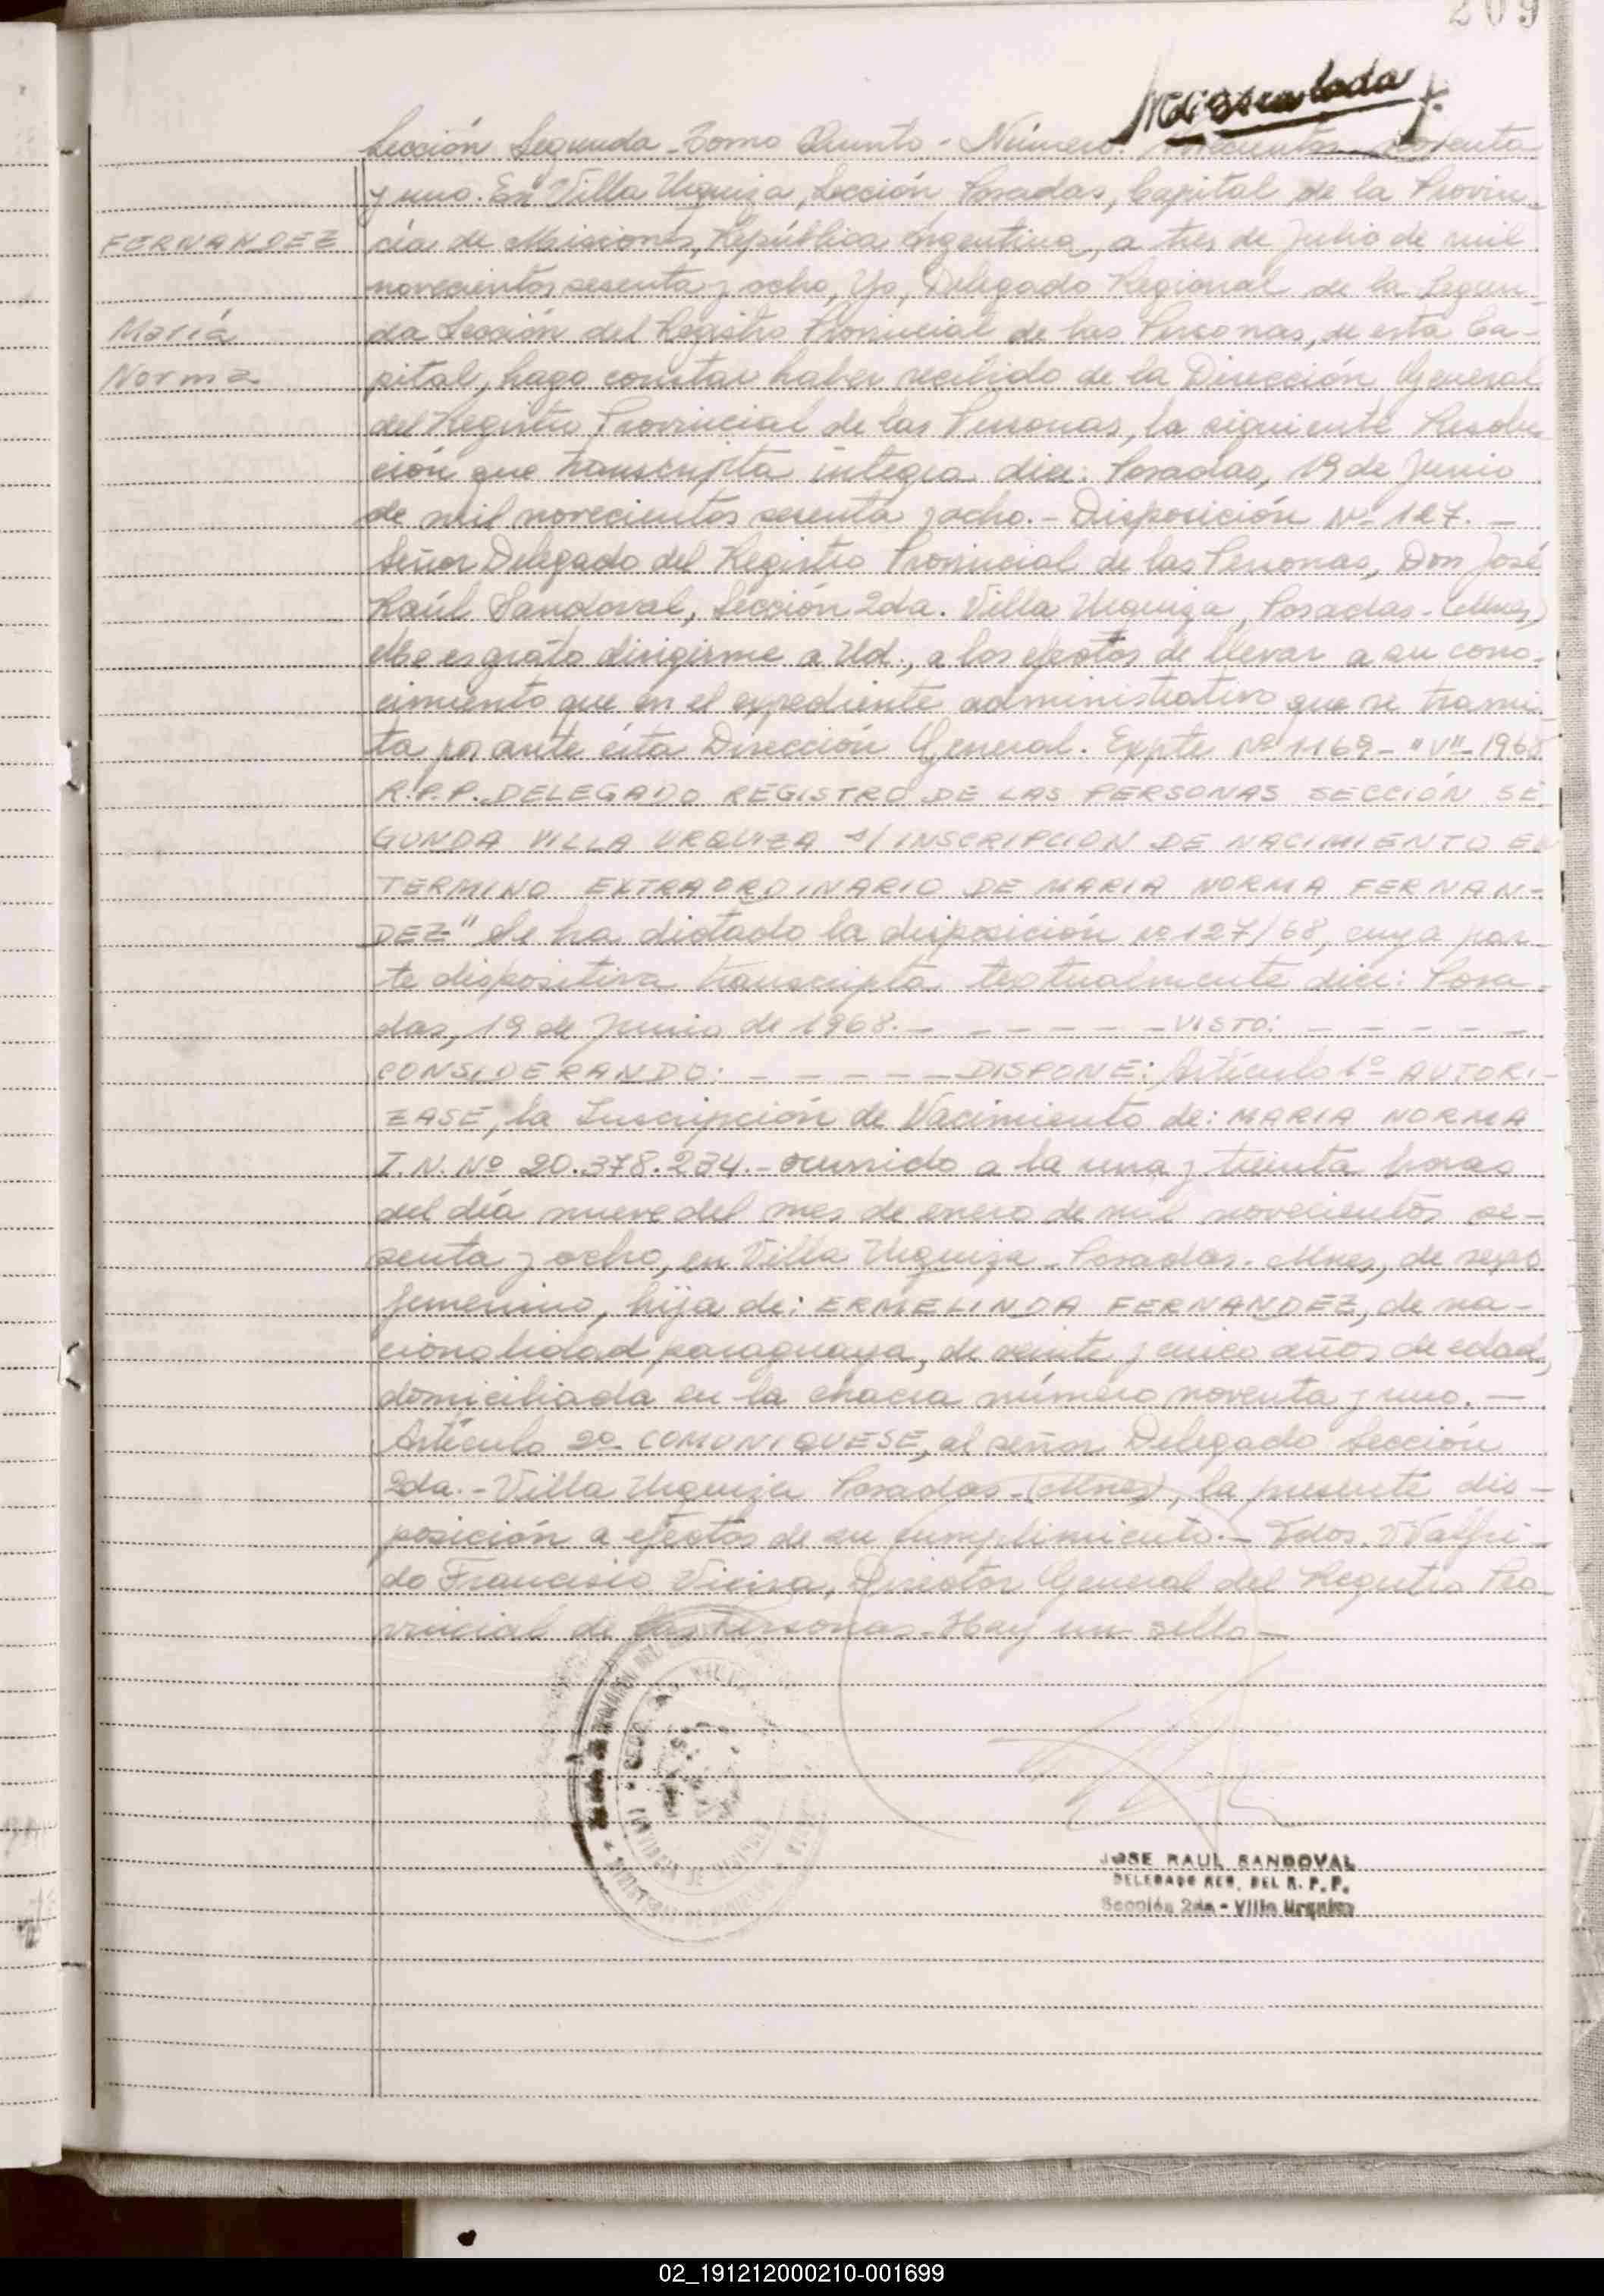 209
Sección Segunda - Tomo Quinto - Número:
y uno. En Villa Urquiza, Sección Posadas, Capital de la Provin-
FERNANDEZ
cia de Misiones, República Argentina, a tres de Julio de mil
novecientos sesenta y ocho, Yo, Delegado Regional de la Segun-
María
da Sección del Registro Provincial de las Personas, de esta Ca-
Norma
pital, hago constar haber recibido de la Dirección General
del Registro Provincial de las Personas, la siguiente Resolu-
ción que transcripta integra dice: Posadas, 19 de Junio
de mil novecientos sesenta y ocho. - Disposición Nº 127. -
Señor Delegado del Registro Provincial de las Personas, Don José
Raúl Sandoval, Sección 2da. Villa Urquiza, Posadas - (Mnes)
Me es grato dirigirme a Ud., a los efectos de llevar a su cono-
cimiento que en el expediente administrativo que se trami-
ta por ante ésta Dirección General. Expte Nº 1169 - "V" - 1968
R.P.P. DELEGADO REGISTRO DE LAS PERSONAS SECCIÓN SE-
GUNDA VILLA URQUIZA s/ INSCRIPCION DE NACIMIENTO EN
TERMINO EXTRAORDINARIO DE MARIA NORMA FERNAN-
DEZ" Se ha dictado la disposición Nº 127/68, cuya par-
te dispositiva transcripta textualmente dice: Posa-
das, 19 de Junio de 1968. - - - - - - VISTO: - - - - -
CONSIDERANDO: - - - - - DISPONE: Artículo 1º AUTORI-
ZASE, la Inscripción de Nacimiento de: MARIA NORMA
I.N. Nº 20.378.234. - ocurrido a la una y treinta horas
del día nueve del mes de enero de mil novecientos se-
senta y ocho, en Villa Urquiza - Posadas - Mnes, de sexo
femenino, hija de: ERMELINDA FERNANDEZ, de na-
cionalidad paraguaya, de veinte y cinco años de edad,
domiciliada en la chacra número noventa y uno. -
Artículo 2º COMUNIQUESE, al señor Delegado Sección
2da. - Villa Urquiza Posadas - (Mnes), la presente dis-
posición a efectos de su cumplimiento. - Fdos. Walfri-
do Francisco Vieira, Director General del Registro Pro-
vincial de las Personas - Hay un sello -
JOSE RAUL SANDOVAL
DELEGADO REG. DEL R.P.P.
Sección 2da - Villa Urquiza
02_191212000210-001699